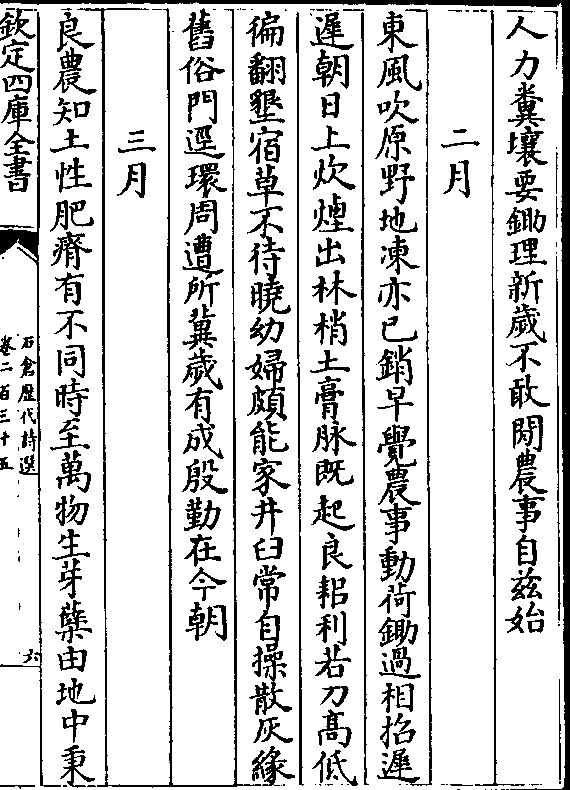 人力糞壤要鋤理新歲不敢閒農事自兹始
二月
東風吹原野地凍亦已銷早覺農事動荷鋤過相招遲
遲朝日上炊煙出林梢土膏脉既起良耜利若刀高低
徧翻墾宿草不待曉幼婦頗能家井臼常自操散灰緣
舊俗門逕環周遭所冀歲有成殷勤在今朝
三月
良農知土性肥瘠有不同時至萬物生芽蘖由地中秉
欽定四庫全書
石倉歷代詩選
卷二百三十五
六